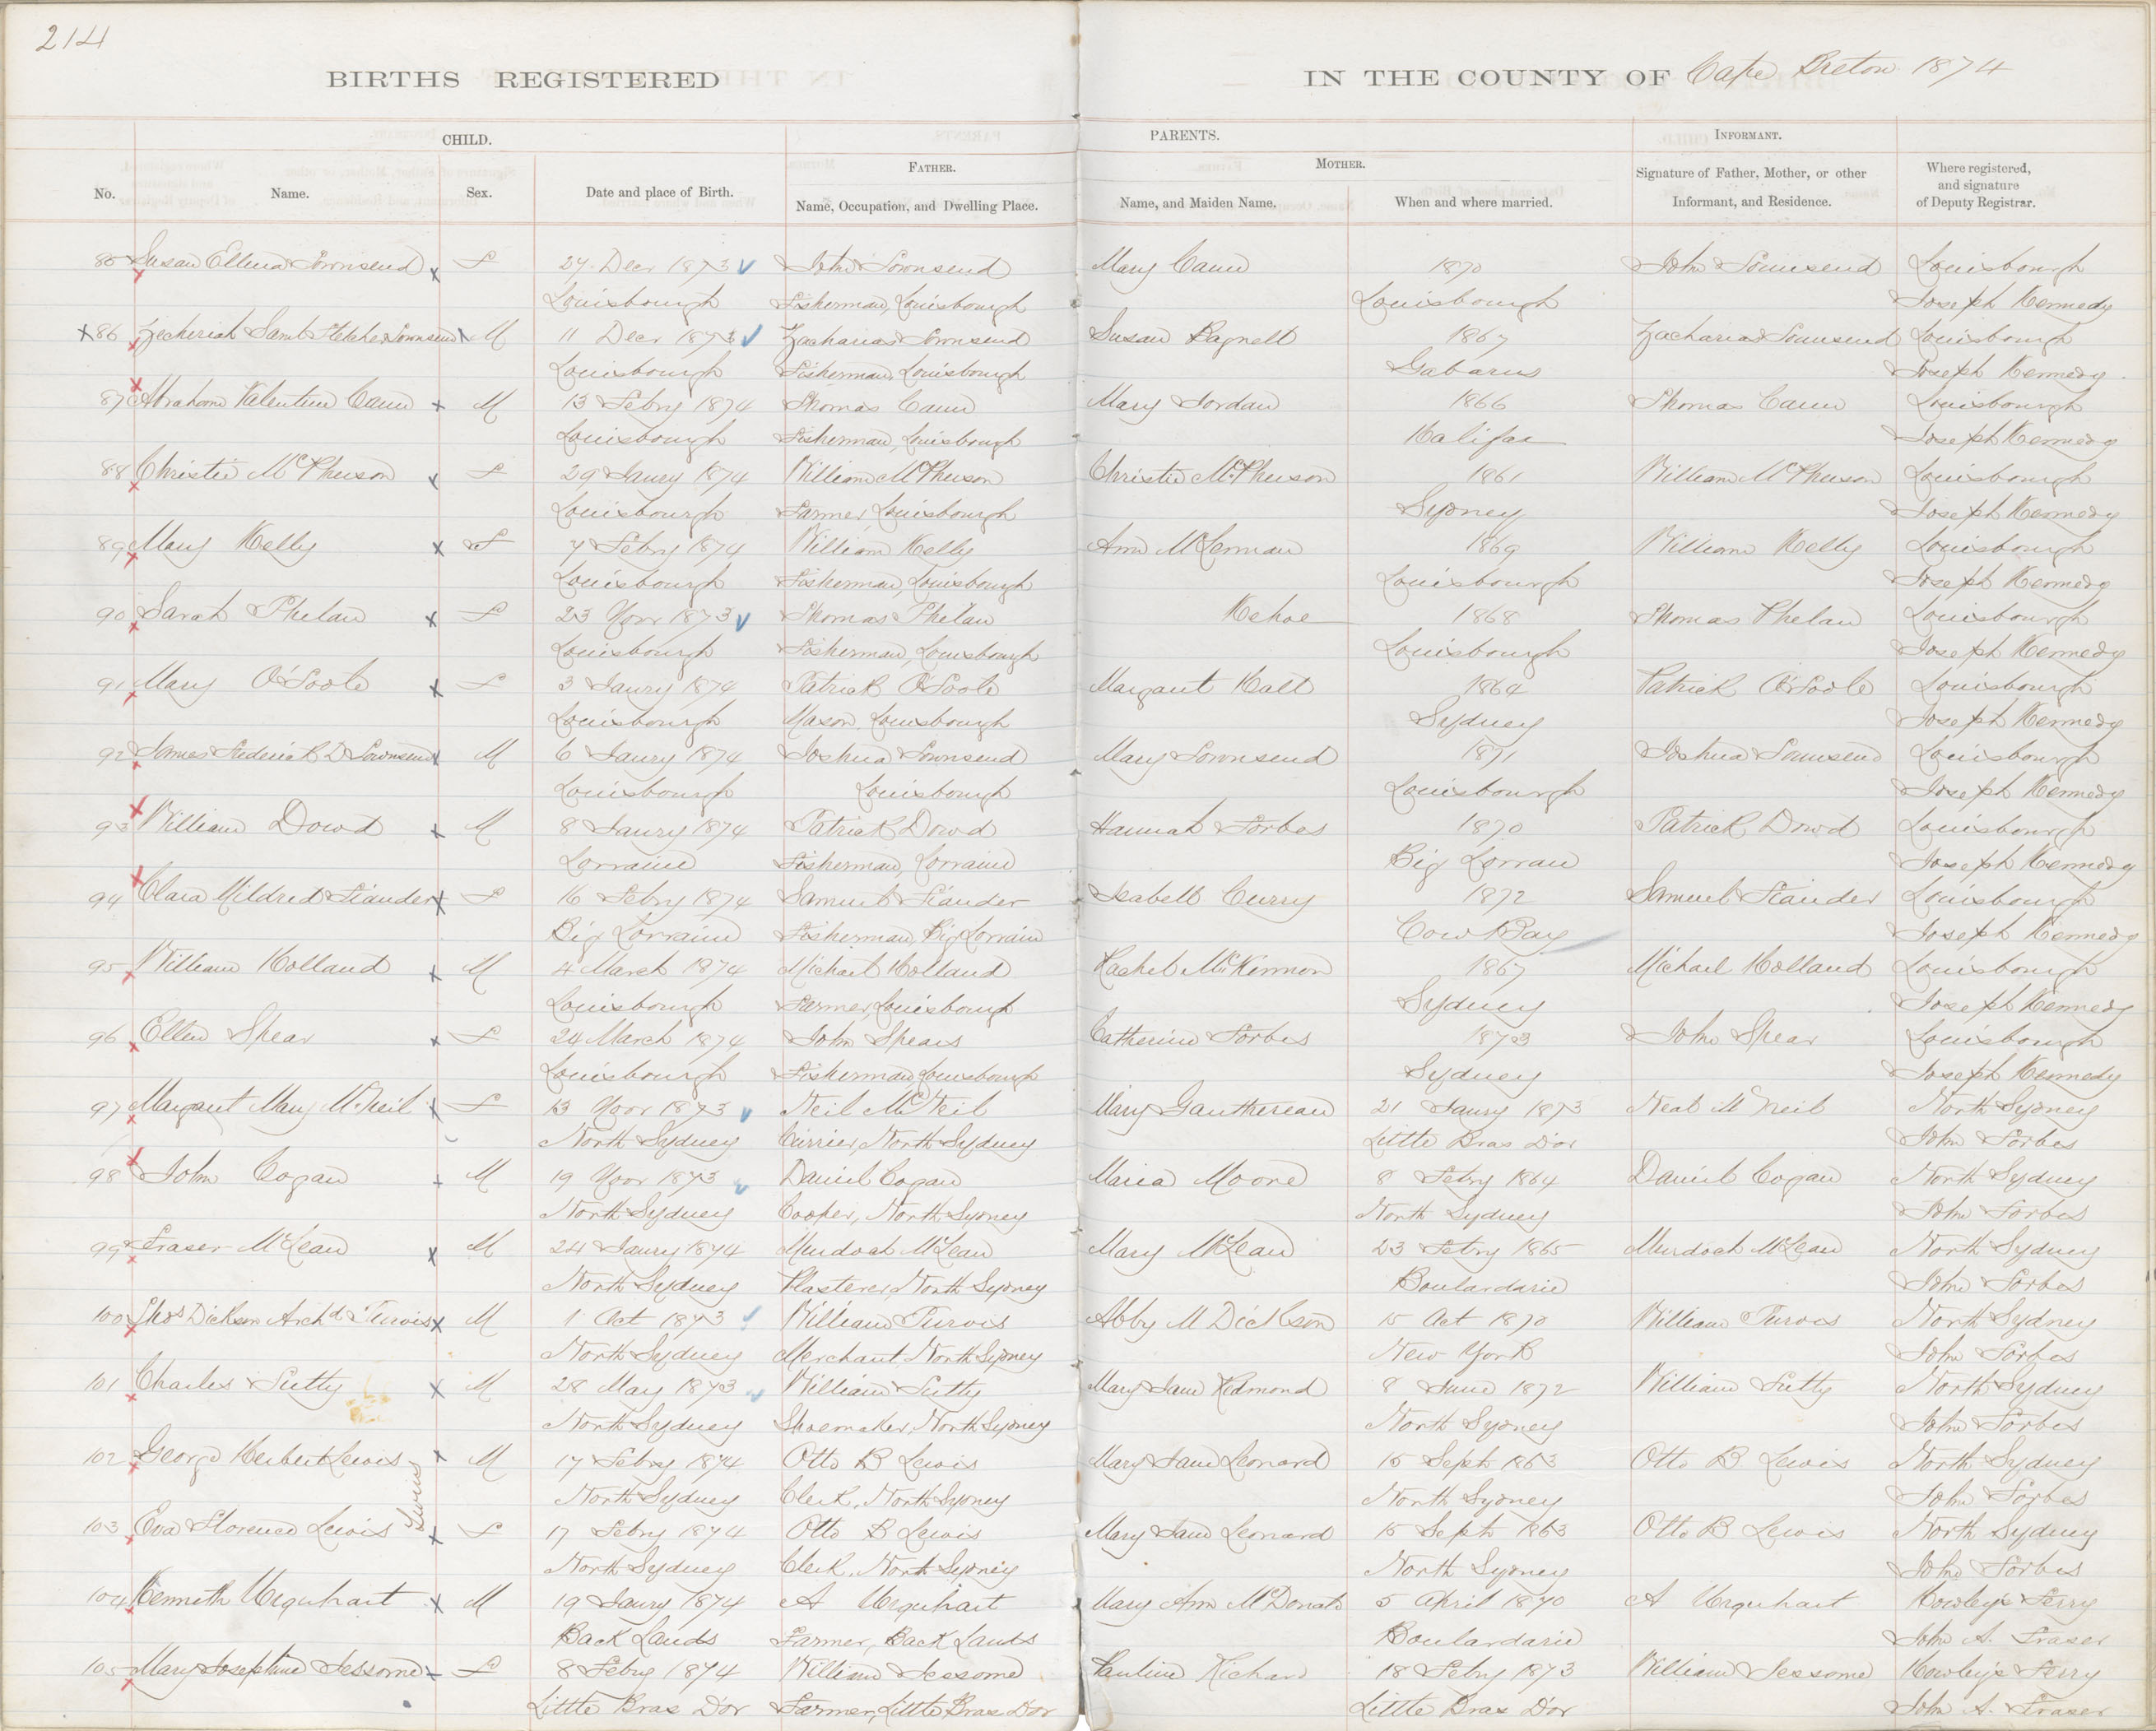 214
BIRTHS REGISTERED IN THE COUNTY OF Cape Breton 1874
CHILD. PARENTS. INFORMANT.
FATHER. MOTHER.
No. Name. Sex. Date and place of Birth. Name, Occupation, and Dwelling Place. Name, and Maiden Name. When and where married. Signature of Father, Mother, or other Informant, and Residence. Where registered, and signature of Deputy Registrar.
85 Susan Ellena Townsend F 27 Decr 1873 John Townsend Mary Cann 1870 John Townsend Louisbourgh
Louisbourgh Fisherman, Louisbourgh Louisbourgh Joseph Kennedy
X 86 Zecheriah Saml Fletcher Townsend M 11 Decr 1873 Zacharias Townsend Susan Bagnell 1867 Zacharias Townsend Louisbourgh
Louisbourgh Fisherman, Louisbourgh Gabarus Joseph Kennedy
87 Abraham Valentine Cann M 13 Febry 1874 Thomas Cann Mary Jordan 1866 Thomas Cann Louisbourgh
Louisbourgh Fisherman, Louisbourgh Halifax Joseph Kennedy
88 Christie McPherson F 29 Janry 1874 William McPherson Christie McPherson 1861 William McPherson Louisbourgh
Louisbourgh Farmer, Louisbourgh Sydney Joseph Kennedy
89 Mary Kelly F 7 Febry 1874 William Kelly Ann McLennan 1869 William Kelly Louisbourgh
Louisbourgh Fisherman, Louisbourgh Louisbourgh Joseph Kennedy
90 Sarah Phelan F 23 Novr 1873 Thomas Phelan Kehoe 1868 Thomas Phelan Louisbourgh
Louisbourgh Fisherman, Louisbourgh Louisbourgh Joseph Kennedy
91 Mary O'Toole F 3 Janry 1874 Patrick O'Toole Margaret Halt 1864 Patrick O'Toole Louisbourgh
Louisbourgh Mason, Louisbourgh Sydney Joseph Kennedy
92 James Frederick D Townsend M 6 Janry 1874 Joshua Townsend Mary Townsend 1871 Joshua Townsend Louisbourgh
Louisbourgh Louisbourgh Louisbourgh Joseph Kennedy
93 William Dowd M 8 Janry 1874 Patrick Dowd Hannah Forbes 1870 Patrick Dowd Louisbourgh
Lorraine Fisherman, Lorraine Big Lorran Joseph Kennedy
94 Clara Mildred Tiander F 16 Febry 1874 Samuel Tiander Isabell Curry 1872 Samuel Tiander Louisbourgh
Big Lorraine Fisherman, Big Lorrain Cow Bay Joseph Kennedy
95 William Holland M 4 March 1874 Michael Holland Rachel McKinnon 1867 Michael Holland Louisbourgh
Louisbourgh Farmer, Louisbourgh Sydney Joseph Kennedy
96 Ellen Spear F 24 March 1874 John Spears Catherine Forbes 1873 John Spear Louisbourgh
Louisbourgh Fisherman, Louisbourgh Sydney Joseph Kennedy
97 Margaret Mary McNeil F 13 Novr 1873 Neil McNeil Mary Gauthereau 21 Janry 1873 Neal McNeil North Sydney
North Sydney Currier, North Sydney Little Bras D'or John Forbes
98 John Cogan M 19 Novr 1873 Daniel Cogan Maria Moore 8 Febry 1864 Daniel Cogan North Sydney
North Sydney Cooper, North Sydney North Sydney John Forbes
99 Fraser McLean M 24 Janry 1874 Murdoch McLean Mary McLean 23 Febry 1865 Murdoch McLean North Sydney
North Sydney Plasterer, North Sydney Boulardarie John Forbes
100 Thos Dickson Archd Purvis M 1 Oct 1873 William Purvis Abby M Dickson 15 Oct 1870 William Purvis North Sydney
North Sydney Merchant, North Sydney New York John Forbes
101 Charles Sutty M 28 May 1873 William Sutty Mary Jane Redmond 8 June 1872 William Sutty North Sydney
North Sydney Shoemaker, North Sydney North Sydney John Forbes
102 George Herbert Lewis M 17 Febry 1874 Otto B Lewis Mary Jane Leonard 15 Sept 1863 Otto B Lewis North Sydney
Twins
North Sydney Clerk, North Sydney North Sydney John Forbes
103 Eva Florence Lewis F 17 Febry 1874 Otto B Lewis Mary Jane Leonard 15 Sept 1863 Otto B Lewis North Sydney
North Sydney Clerk, North Sydney North Sydney John Forbes
104 Kenneth Urquhart M 19 Janry 1874 A Urquhart Mary Ann McDonald 5 April 1870 A Urquhart Howley's Ferry
Back Lands Farmer, Back Lands Boulardarie John A. Fraser
105 Mary Josephine Jessome F 8 Febry 1874 William Jessome Pauline Richard 18 Febry 1873 William Jessome Howley's Ferry
Little Bras D'or Farmer, Little Bras Dor Little Bras Dor John A. Fraser